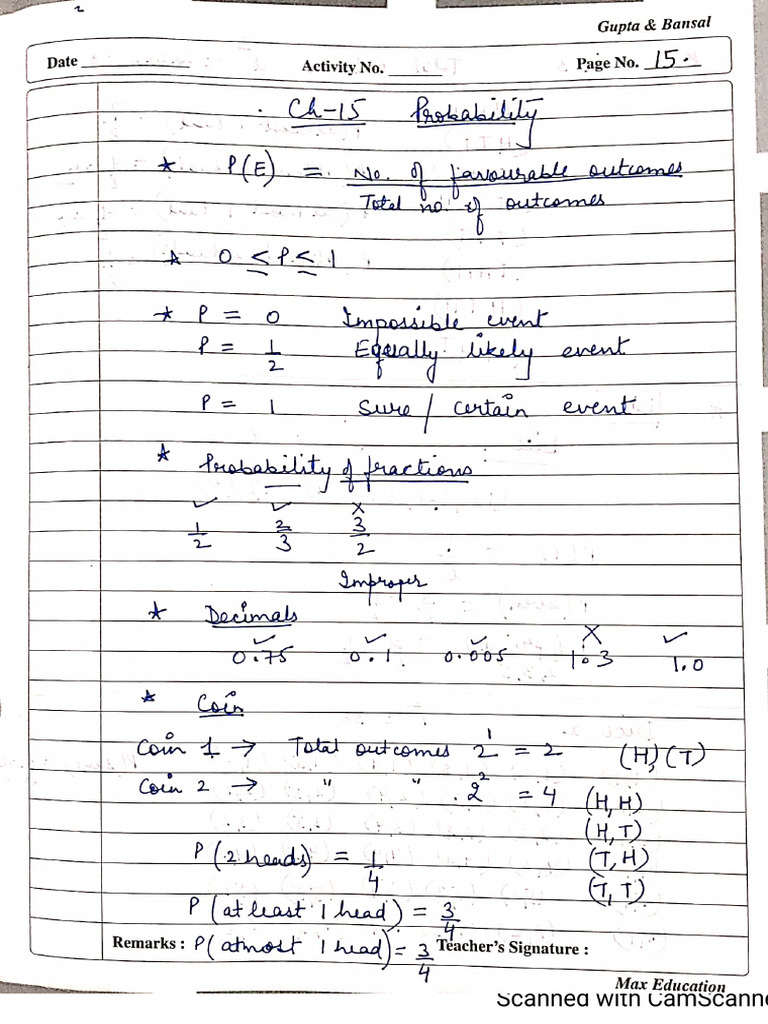 Gupta & Bansal
Date Activity No. Page No. 15.
Ch-15 Probability
* P(E) = No. of favourable outcomes
Total no. of outcomes
* 0 ≤ P ≤ 1
* P = 0 Impossible event
P = 1/2 Equally likely event
P = 1 Sure / certain event
* Probability of fractions
✓ ✓ ×
1/2 2/3 3/2
Improper
* Decimals
✓ ✓ ✓ × ✓
0.75 0.1 0.005 1.3 1.0
* Coin
Coin 1 → Total outcomes 2¹ = 2 (H), (T)
Coin 2 → " " 2² = 4 (H, H)
(H, T)
P (2 heads) = 1/4 (T, H)
(T, T)
P (at least 1 head) = 3/4
Remarks : P (atmost 1 head) = 3/4 Teacher's Signature :
Max Education
Scanned with CamScanne